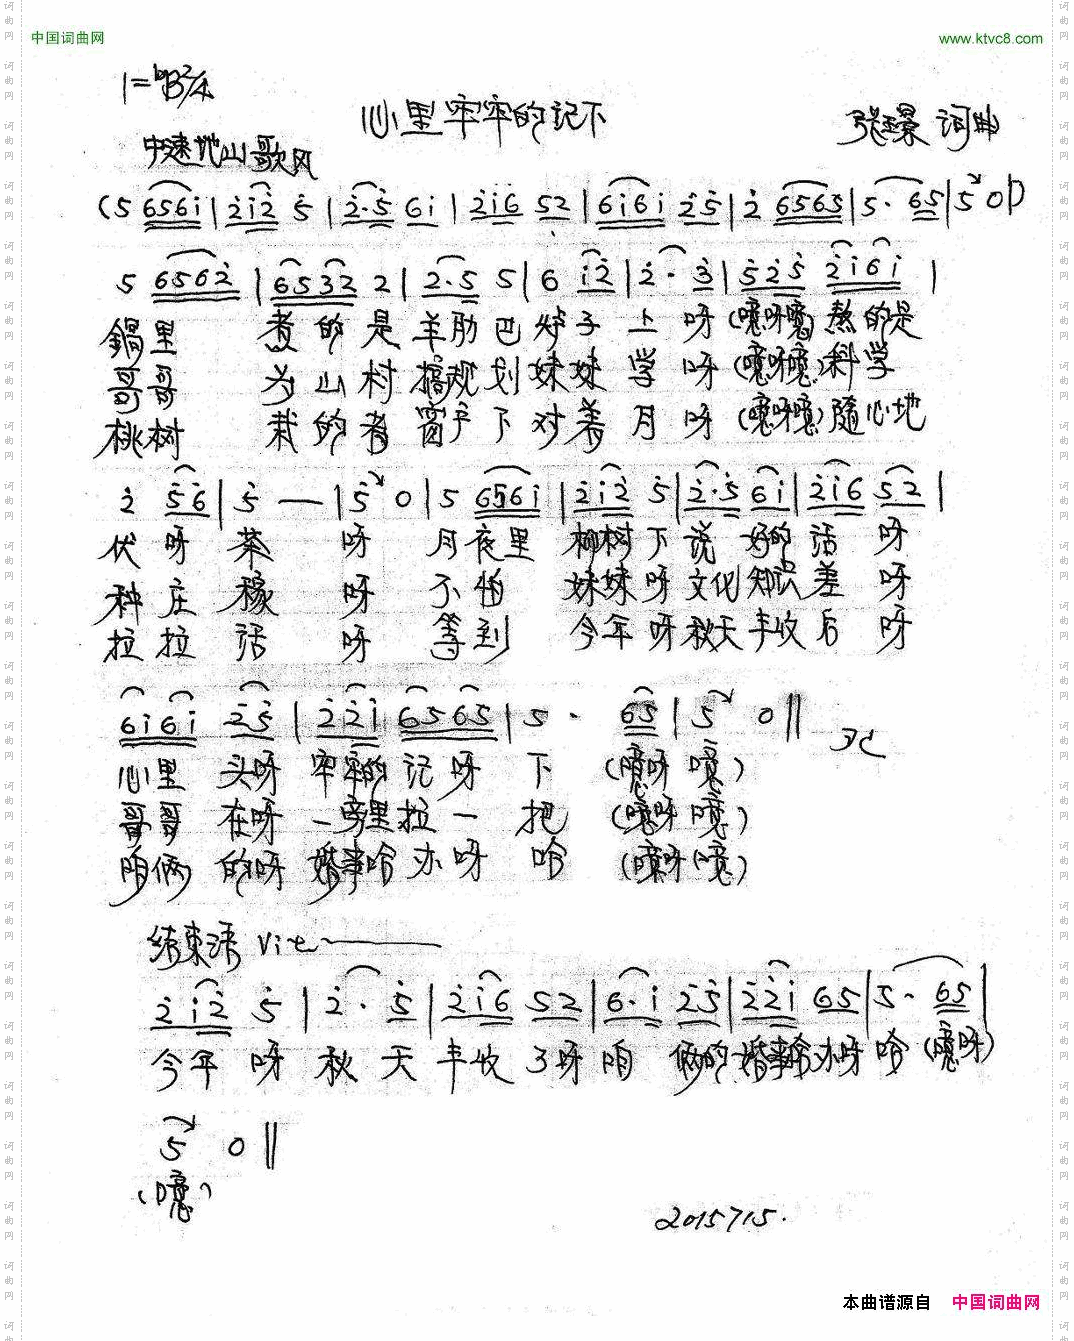 中国词曲网
www.ktvc8.com
1=♭B 2/4
心里牢牢的记下
中速地山歌风
词曲
(5 6561|2i2 5|2·5 6i|2i6 52|6i6i 25|2 6565|5· 65|5 0|)
5 6562|6532 2|2·5 5|6 i2|2· 3|525 2i6i|
锅里 煮的是羊肋巴炉子上呀(噫呀噫)熬的是
哥哥 为山村搞规划妹妹学呀(噫呀噫)科学
桃树 栽的者窗户下对着月呀(噫呀噫)随心地
2 56|5 —|5 0|5 656i|2i2 5|2·5 6i|2i6 52|
伏呀茶 呀 月夜里 柳树下说好的话呀
种庄稼 呀 不怕 妹妹呀文化知识差呀
拉拉话 呀 等到 今年呀秋天丰收后呀
6i6i 25|22i 6565|5· 65|5 0‖
心里头呀牢牢的记呀下 (噫呀噫)
哥哥在呀一旁里拉一把 (噫呀噫)
咱俩的呀婚事哈办呀哈 (噫呀噫)
结束语
2i2 5|2· 5|2i6 52|6·i 25|22i 65|5· 65|
今年呀秋天丰收了呀咱俩的婚事哈办呀哈(噫呀)
5 0‖
(噫)
2015715.
本曲谱源自 中国词曲网